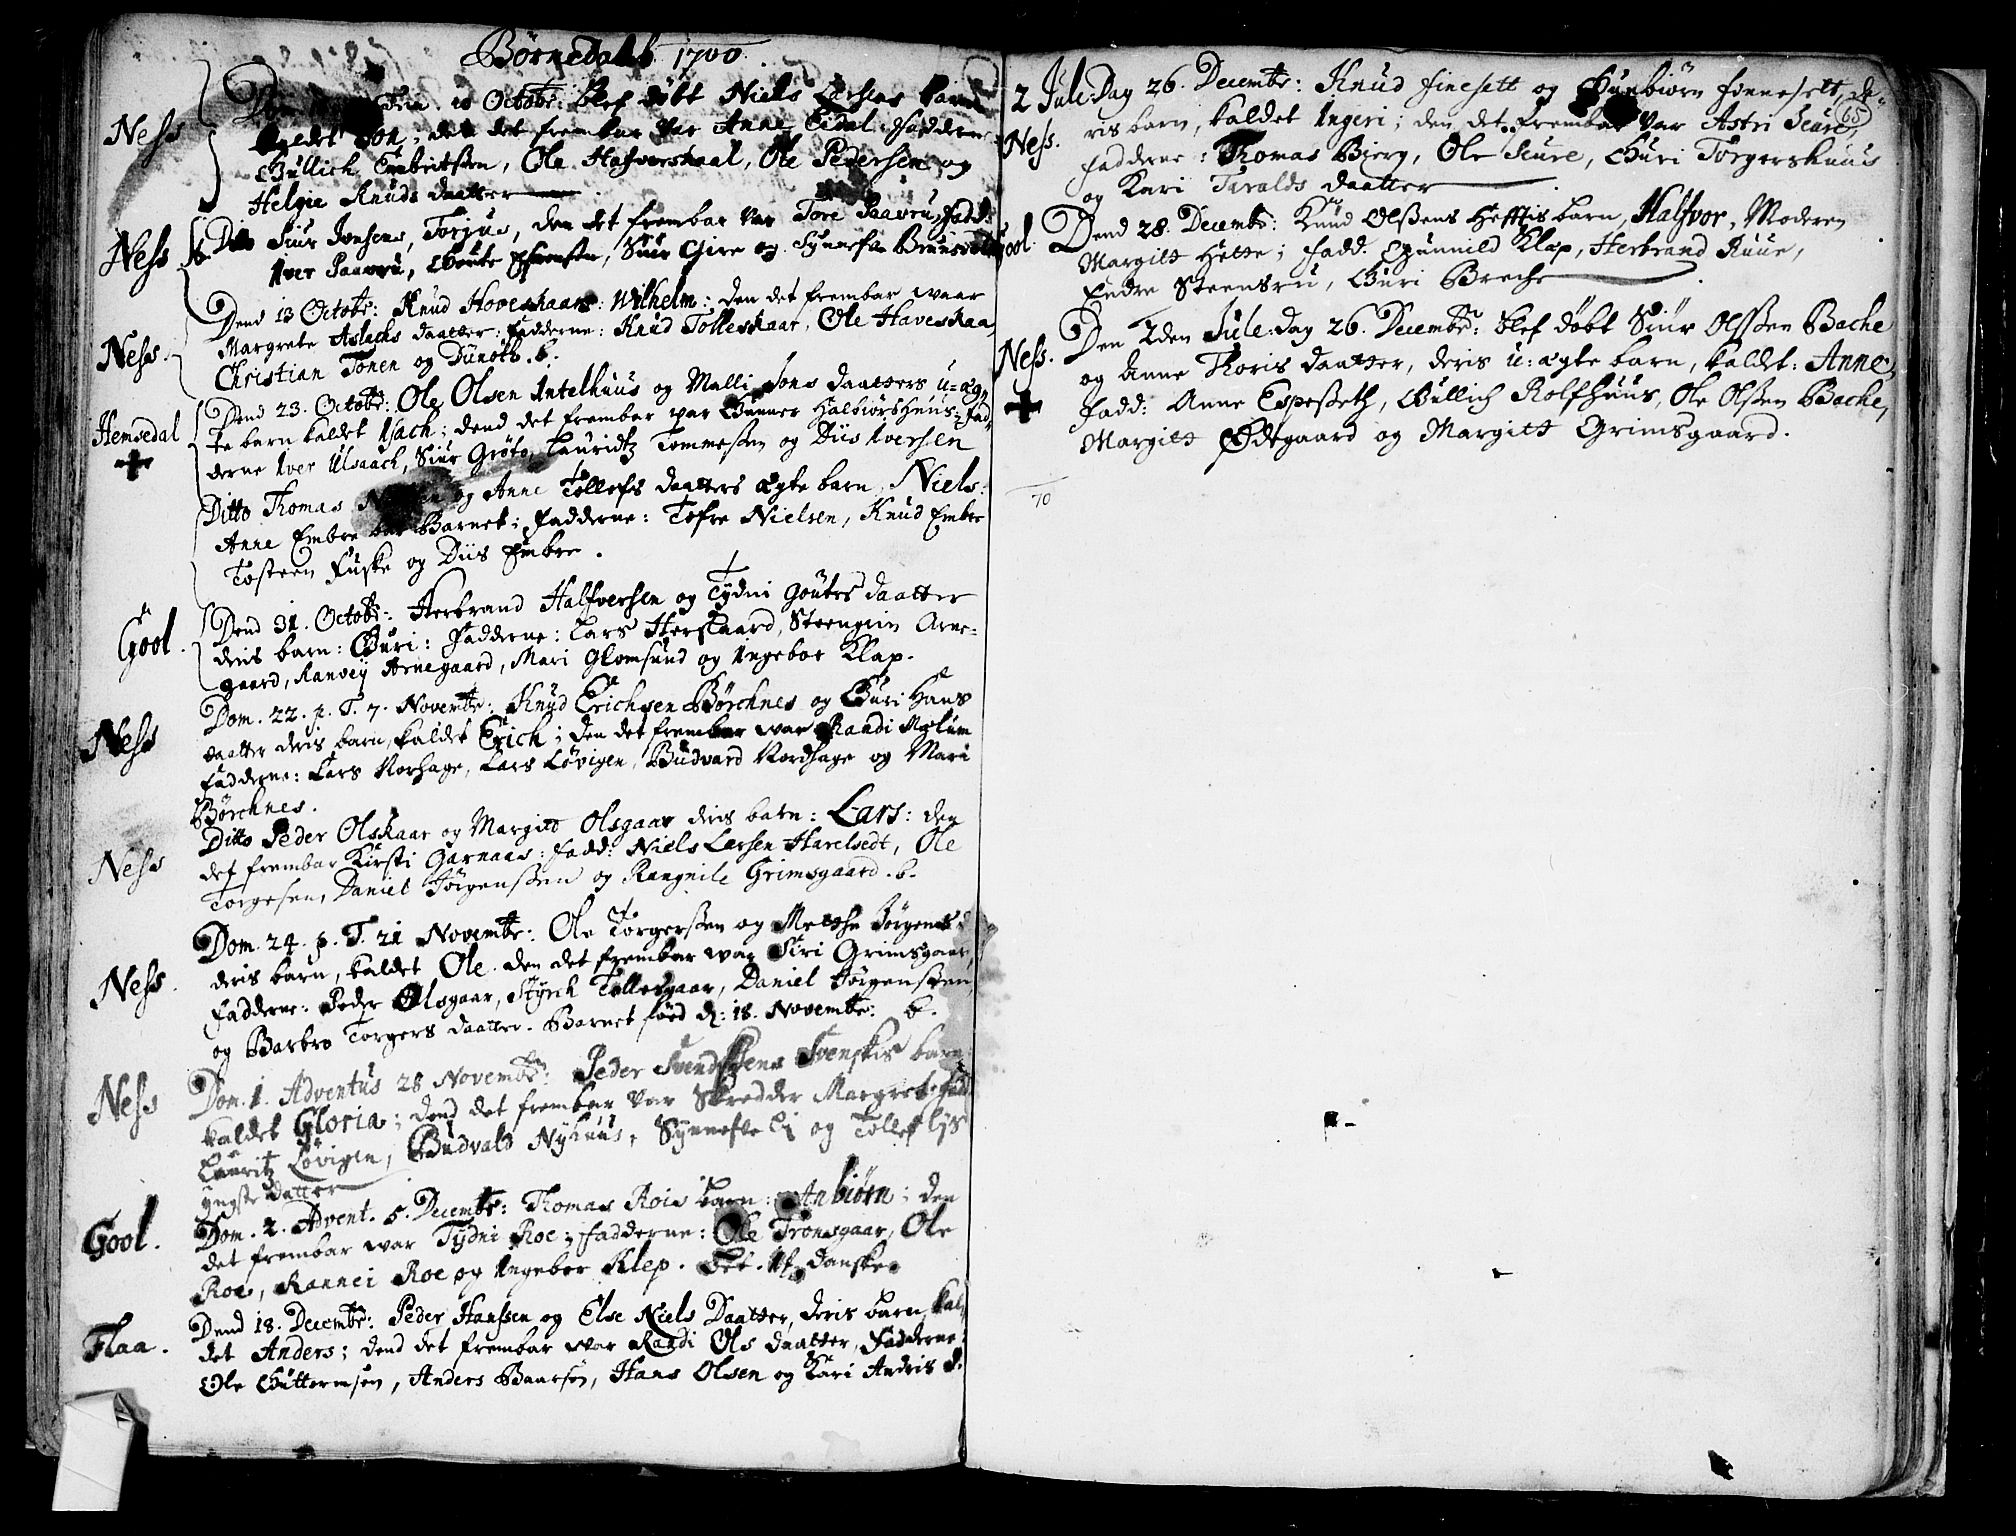 Börnedaab 1700.
Ness
10 Octobr: blef döbt Niels Larsens barn
kaldet Jon; den det frembar var Anne Eidal. Fadderne
Gullich Embritsen, Ole Halfvorskaal, Ole Pedersen og
Helgie Knuds daatter
Ness
Dito Siur Jonsens, Torjus, den det frembar var Tore Paavru, Fadd:
Iver Paavru, Goute, Siur Gire og Synnefve
Ness.
Dend 13 Octobr: Knud Hoveskaars: Wilhelm: den det frembar waar
Margrete Aslachs daatter: Fadderne: Knud Tolleskaar, Ole Haveskaa
Christian Tonen og Dünoth. b.
Hemsedal
Dend 23. Octobr: Ole Olsen Intelhuus og Malli Jons daatters u=æg-
te barn kaldet Isach; dend det frembar var Gunner Halbiörshuus; Fad-
derne Iver Ulsaach, Siur Gröto, Lauridtz Tommesen og Diis Iversen
Ditto Thomas og Anne Tollefs daatters ægte barn Niels:
Anne Embre bar Barnet; Fadderne: Tofre Nielsen, Knud Embre
Tosteen Fuske og Diis Embre.
Gool.
Dend 31. Octobr: Herbrand Halfversen og Tydni Goutes daatter
deris barn: Guri: Fadderne: Lars Herslaard, Steengrim Arne-
gaard, Ranvey Arnegaard, Mari Glomsund og Ingebor Klap.
Ness
Dom. 22. p. T. 7. Novembr: Knud Erichsen Börchnes og Guri Hans
daatter deris barn, kaldet Erich; den det frembar war Randi Molum
Fadderne: Lars Norhage, Lars Lövigen, Budvard Nordhage og Mari
Börchnes.
Ness
Ditto Peder Olskaar og Margitt Olsgaar deris barn: Lars: den
det frembar Kirsti Garnaas: Fadd: Niels Larsen Harelsedt, Ole
Torgesen, Daniel Jörgensen og Rangnile Grimsgaard. b.
Ness.
Dom. 24. p. T. 21 Novembr: Ole Torgersen og Metthe Jörgens d
deris barn, kaldet Ole. den det frembar war Siri Grimsgaar,
Fadderne: Peder Olsgaar, Styrch Tollesgaar, Daniel Jörgensen
og Barbro Torgers daatter. Barnet föed d: 18. Novembr: b.
Ness
Dom. 1. Adventus 28 Novembr: Peder Svendsens Svenskis barn
kaldet Gloria; dend det frembar var Skredder Margret. Fadd
Lauritz Lövigen, Budvald Nyhuus, Synnefve Li og Tollef lys
yngste datter
Gool.
Dom. 2. Advent. 5. Decembr: Thomas Rois barn: Anbiörn: den
det frembar war Tydni Roe; Fadderne: Ole Tronsgaar, Ole
Roe, Rannei Roe og Ingebor Klep. Danske
Flaa.
Dend 18. Decembr: Peder Hanssen og Else Niels Daatter, deris barn, kal-
det Anders; dend det frembar war Randi Ols daatter, Fadderne:
Ole Guttormsen, Anders Baarsen, Hans Olsen og Kari Andris d.
65
2 Jule Dag 26. Decembr: Knud Finesett og Gunbiörn Finnesett, de-
Ness.
ris barn, kaldet Ingeri; den det frembar var Astri Scure,
Fadderne: Thomas Bierg, Ole Scure, Guri Torgershuus
og Kari Taralds daatter
Gool.
Dend 28. Decembr: Knud Olsens Hefftis barn, Halfvor, Moderen
Margitt Hette; Fadd. Gunnild Klap, Herbrand Ruue,
Endre Steensru, Guri Breche
Ness.
Den 2den Jule: Dag 26. Decembr: blef döbt Siur Olssen Bache
og Anne Thoris daatter, deris u: ægte barn, kaldet: Anne
Fadd: Anne Espeseth, Gullich Rolfhuus, Ole Olsen Bache,
Margitt Ödegaard og Margitt Grimsgaard.
70